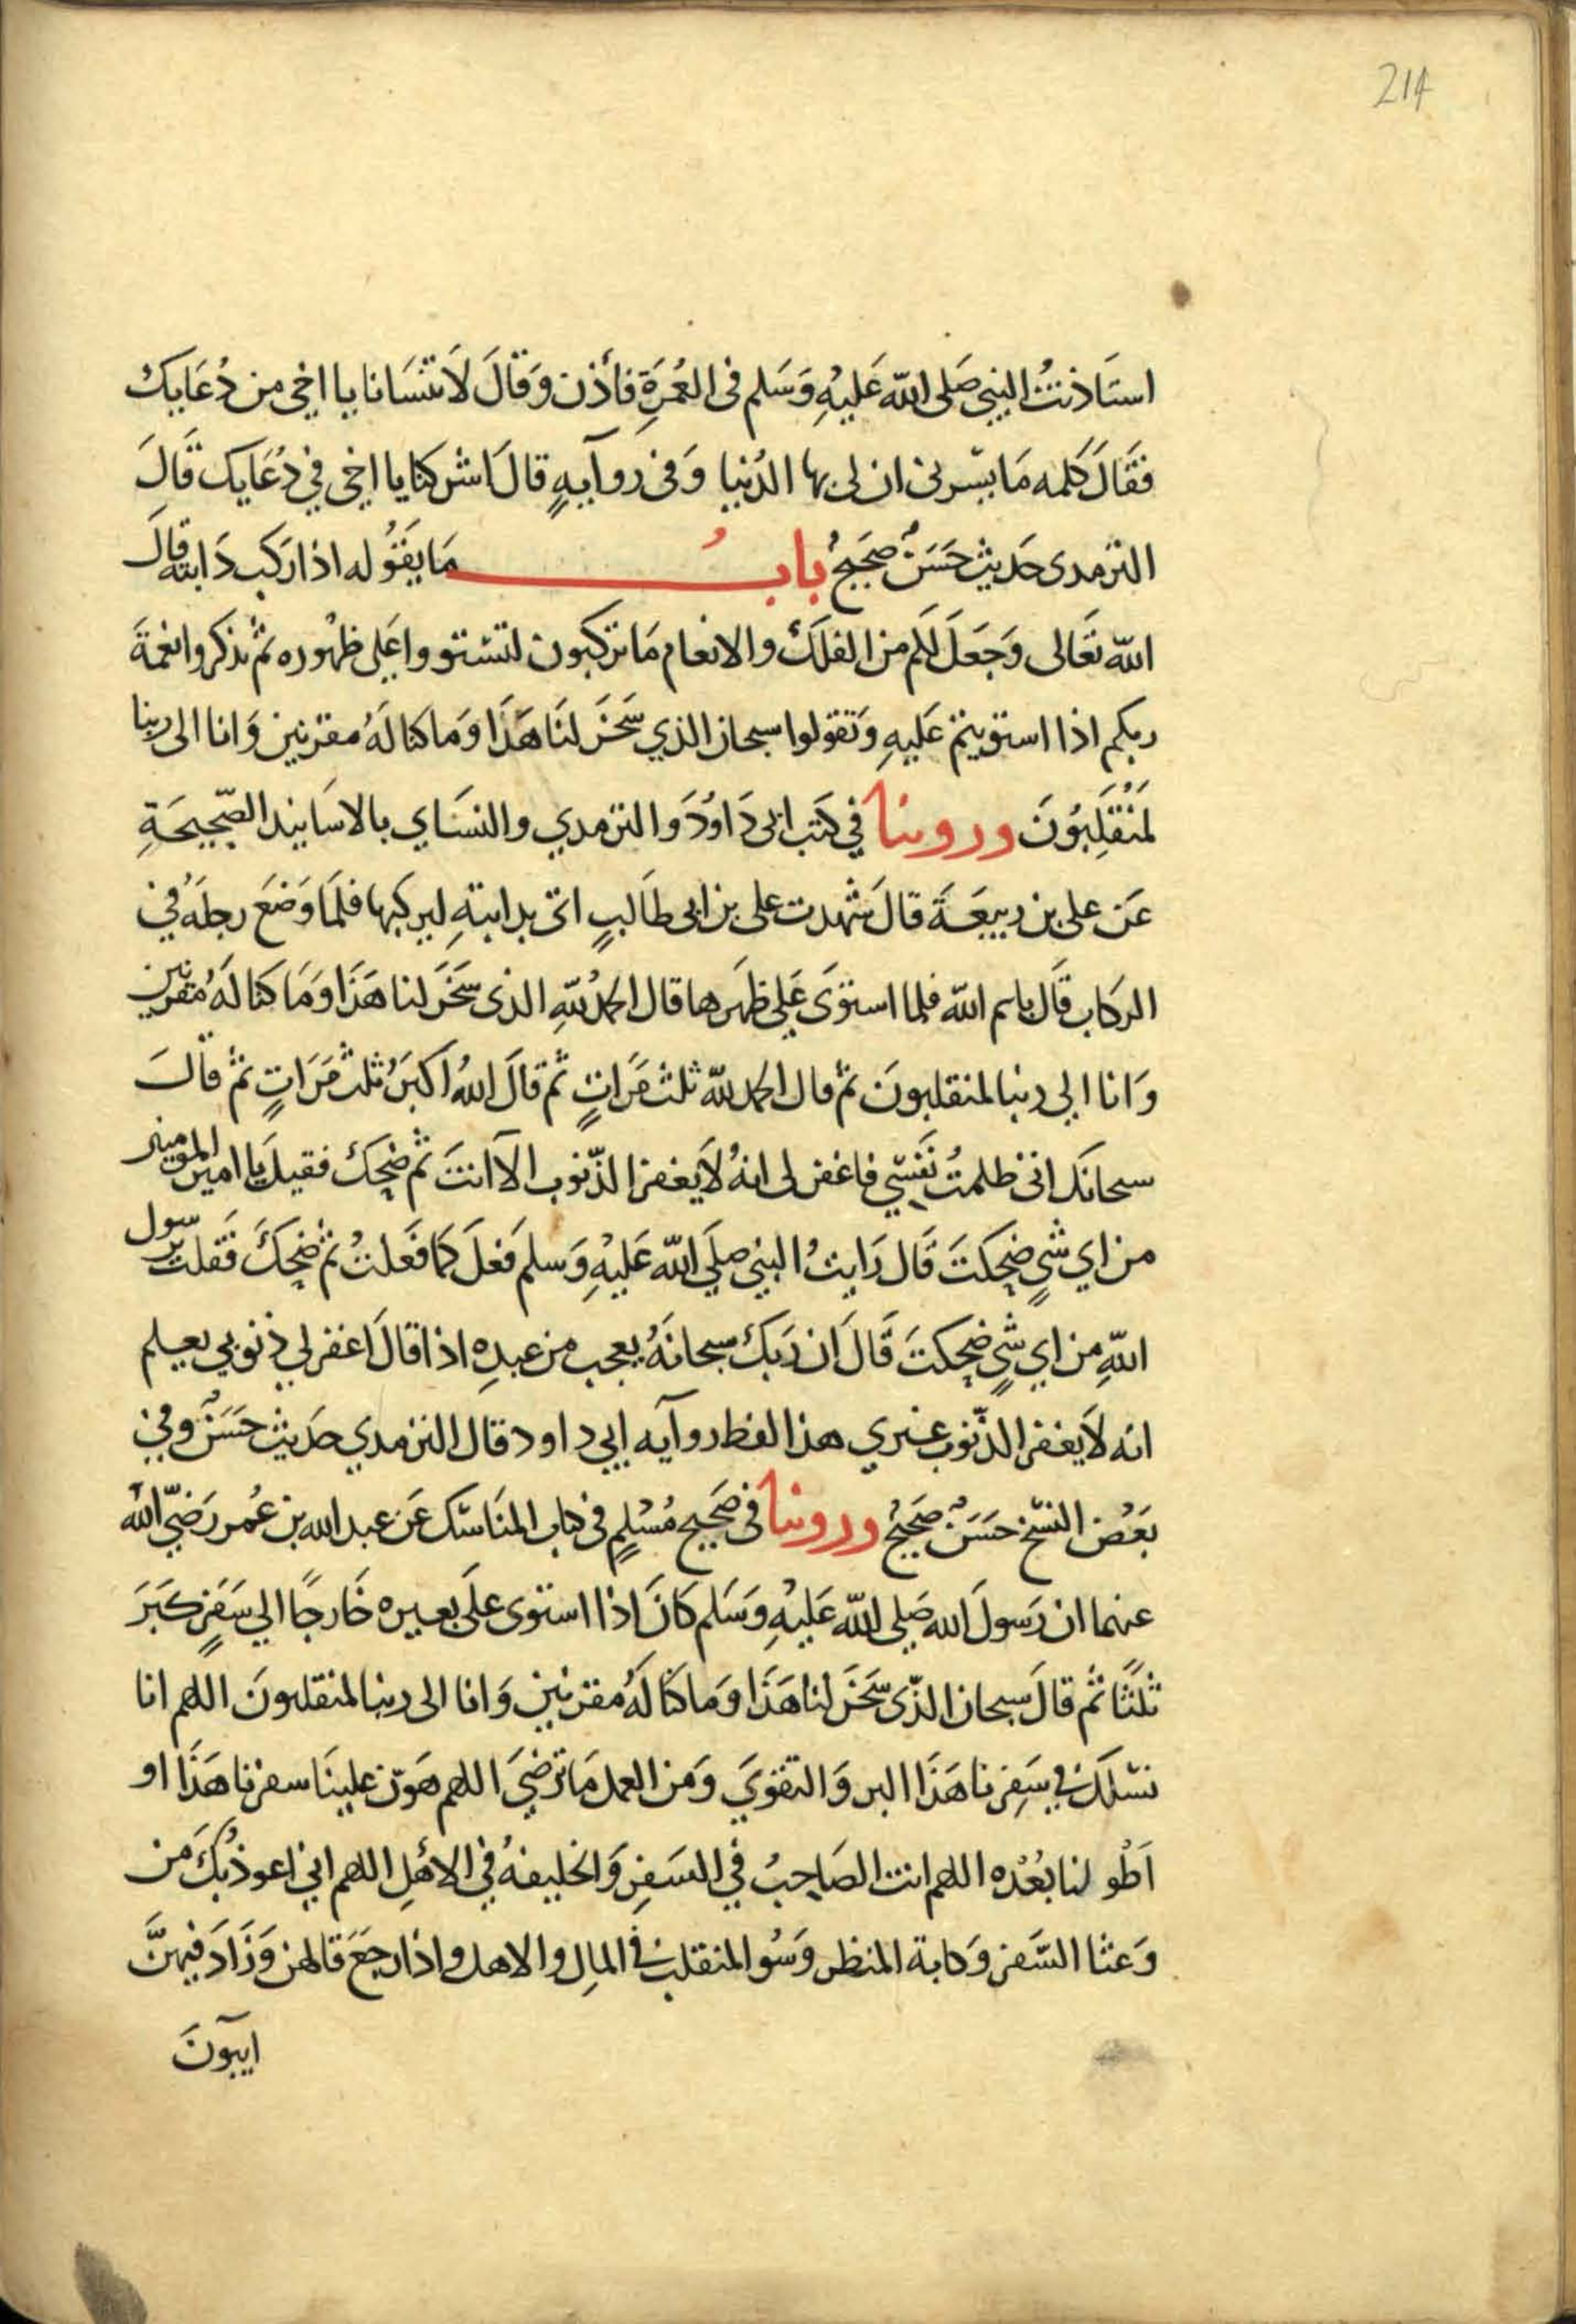 214
استَاذنتُ النبي صَلى الله عَليْهِ وَسَلم فى العُمرَةِ فأذن وَقالَ لاَ تنْسَانا يا اخى من دُعَايك
فقَالَ كلمه مَا يسّرنى ان لى بها الدُنيا وَفى روآيهٍ قالَ اشركنا يا اخى في دُعَايك قَالَ
الترمدى حَديث حَسَنٌ صَحيحٌ بابُ مَا يقَوُله اذا ركب دَابته قال
الله تعَالى وَجَعَلَ لكم من الفلكْ والانعام مَا تركبون لتستووا عَلى ظهُوره ثمْ تذكروا نعْمَةَ
ربكم اذا استويتم عَليهِ وَتقولوا سبحان الذي سَخرَ لنَا هَذَا وَمَا كنا لَهُ مقرنين وَانا الى ربنا
لمُنْقَلِبُونَ وروينا في كتَب ابى دَاوُدَ وَالترمدي والنسَاي بالاسَانيد الصّحِيحَةِ
عَن على بن ربيعَةَ قالَ شهدت على بن ابى طَالبٍ اتى بدابتهِ ليركبها فلمَا وَضَعَ رجلَهُ في
الركاب قَال باسم الله فلما استوَى عَلى ظهَرها قال الحمدُ للهِ الذى سَخرَ لنا هَذَا وَمَا كنا لَهُ مقرنين
وَانا الي ربنا لمنقلبونَ ثمْ قال الحمد لله ثلث مَراتٍ ثم قالَ اللهُ اكبَرُ ثلثْ مَرَاتٍ ثمْ قالَ
سبحانَك انى ظلمتُ نَفسّي فاغفر لى انهُ لاَ يغفر الذّنوب الاّ انتَ ثم ضحِكَ فقيلَ يا امير المومنين
من اي شيٍ ضحِكتَ قَالَ رَايتُ النبي صلَي الله عَليْهِ وَسلم فعلَ كمَا فعَلتُ ثمْ ضحِكَ فَقلت يرسول
اللهِ من اي شيٍ ضحِكتَ قَالَ ان رَبكْ سبحانَهُ يعجب من عبدِه اذا قالَ اغفر لي ذنوبي يعلم
انه لاَ يغفر الذّنوب غيري هذا لفظ روآيه ابي داود قال الترمدي حَديث حَسَنٌ وفي
بَعْض النسّخ حسَنٌ صَحيحٌ وروينا فى صَحيح مُسْلمٍ فى كتاب المنَاسّك عَن عبد الله بن عُمر رَضيّ الله
عنهما ان رَسولَ الله صَلى الله عَليْهِ وَسَلم كانَ اذا استوى علَى بعيره خَارجًا الي سَفرٍ كبَرَ
ثلثًا ثم قالَ سبحان الذّى سَخرَ لنا هَذَا وَما كنَا لَهُ مقرنين وَانا الى ربنا لمنقلبونَ اللهم انا
نسْلكَ في سَفِرنا هَذَا البر وَالتقوَي وَمن العمل مَا ترضَيَ اللهم هَوّن علينَا سفرنا هَذَا او
اَطْو لنا بُعْدْه اللهم انت الصَاحِبُ في السَفرِ وَالخليفهُ في الاهْلِ اللهم اني اعوذُ بكَ مَن
وَعثا السَّفر وَكابة المنظر وَسُو المنقلب في المِال والاهل واذا رجَعَ قالهن وَزَادَ فيهنَّ
ايبَونَ